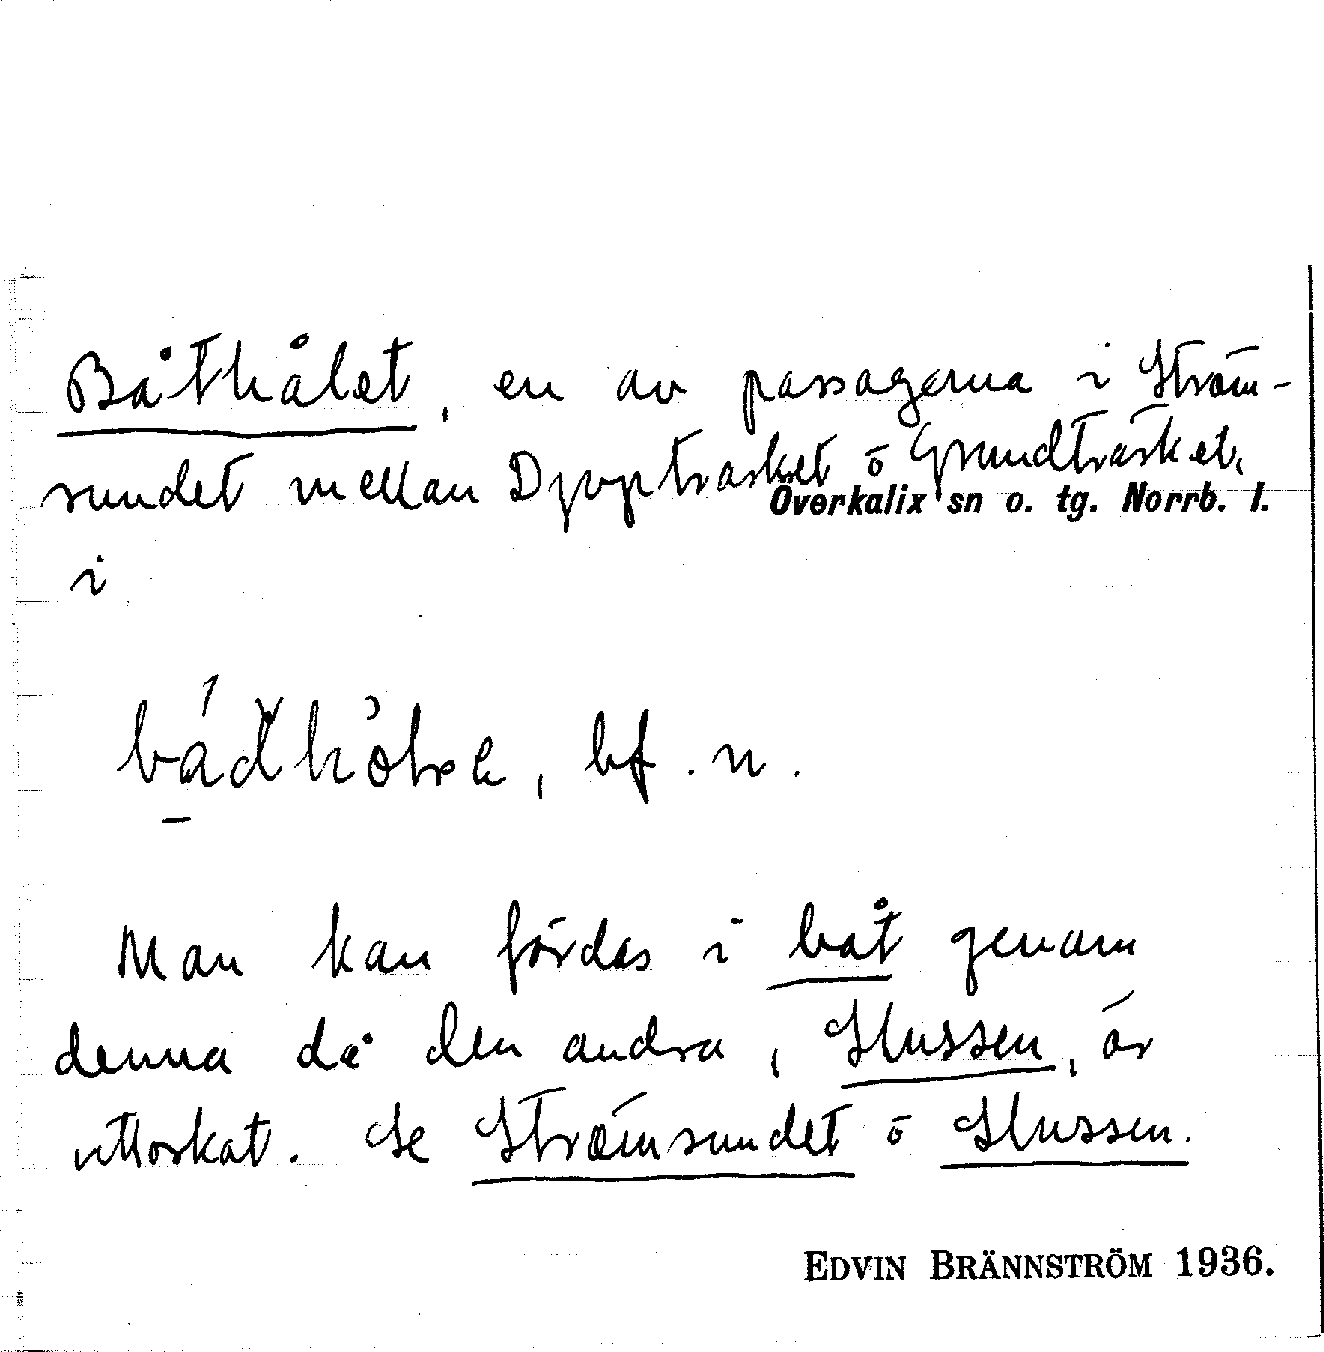 Båthålet, en av passagerna i Ström-
sundet mellan Djupträsket o Grundträsket,
Överkalix sn o. tg. Norrb. l.
i
bf. n.
Man kan färdas i båt genom
denna då den andra, Slussen, är
uttorkat. Se Strömsundet o Slussen.
EDVIN BRÄNNSTRÖM 1936.